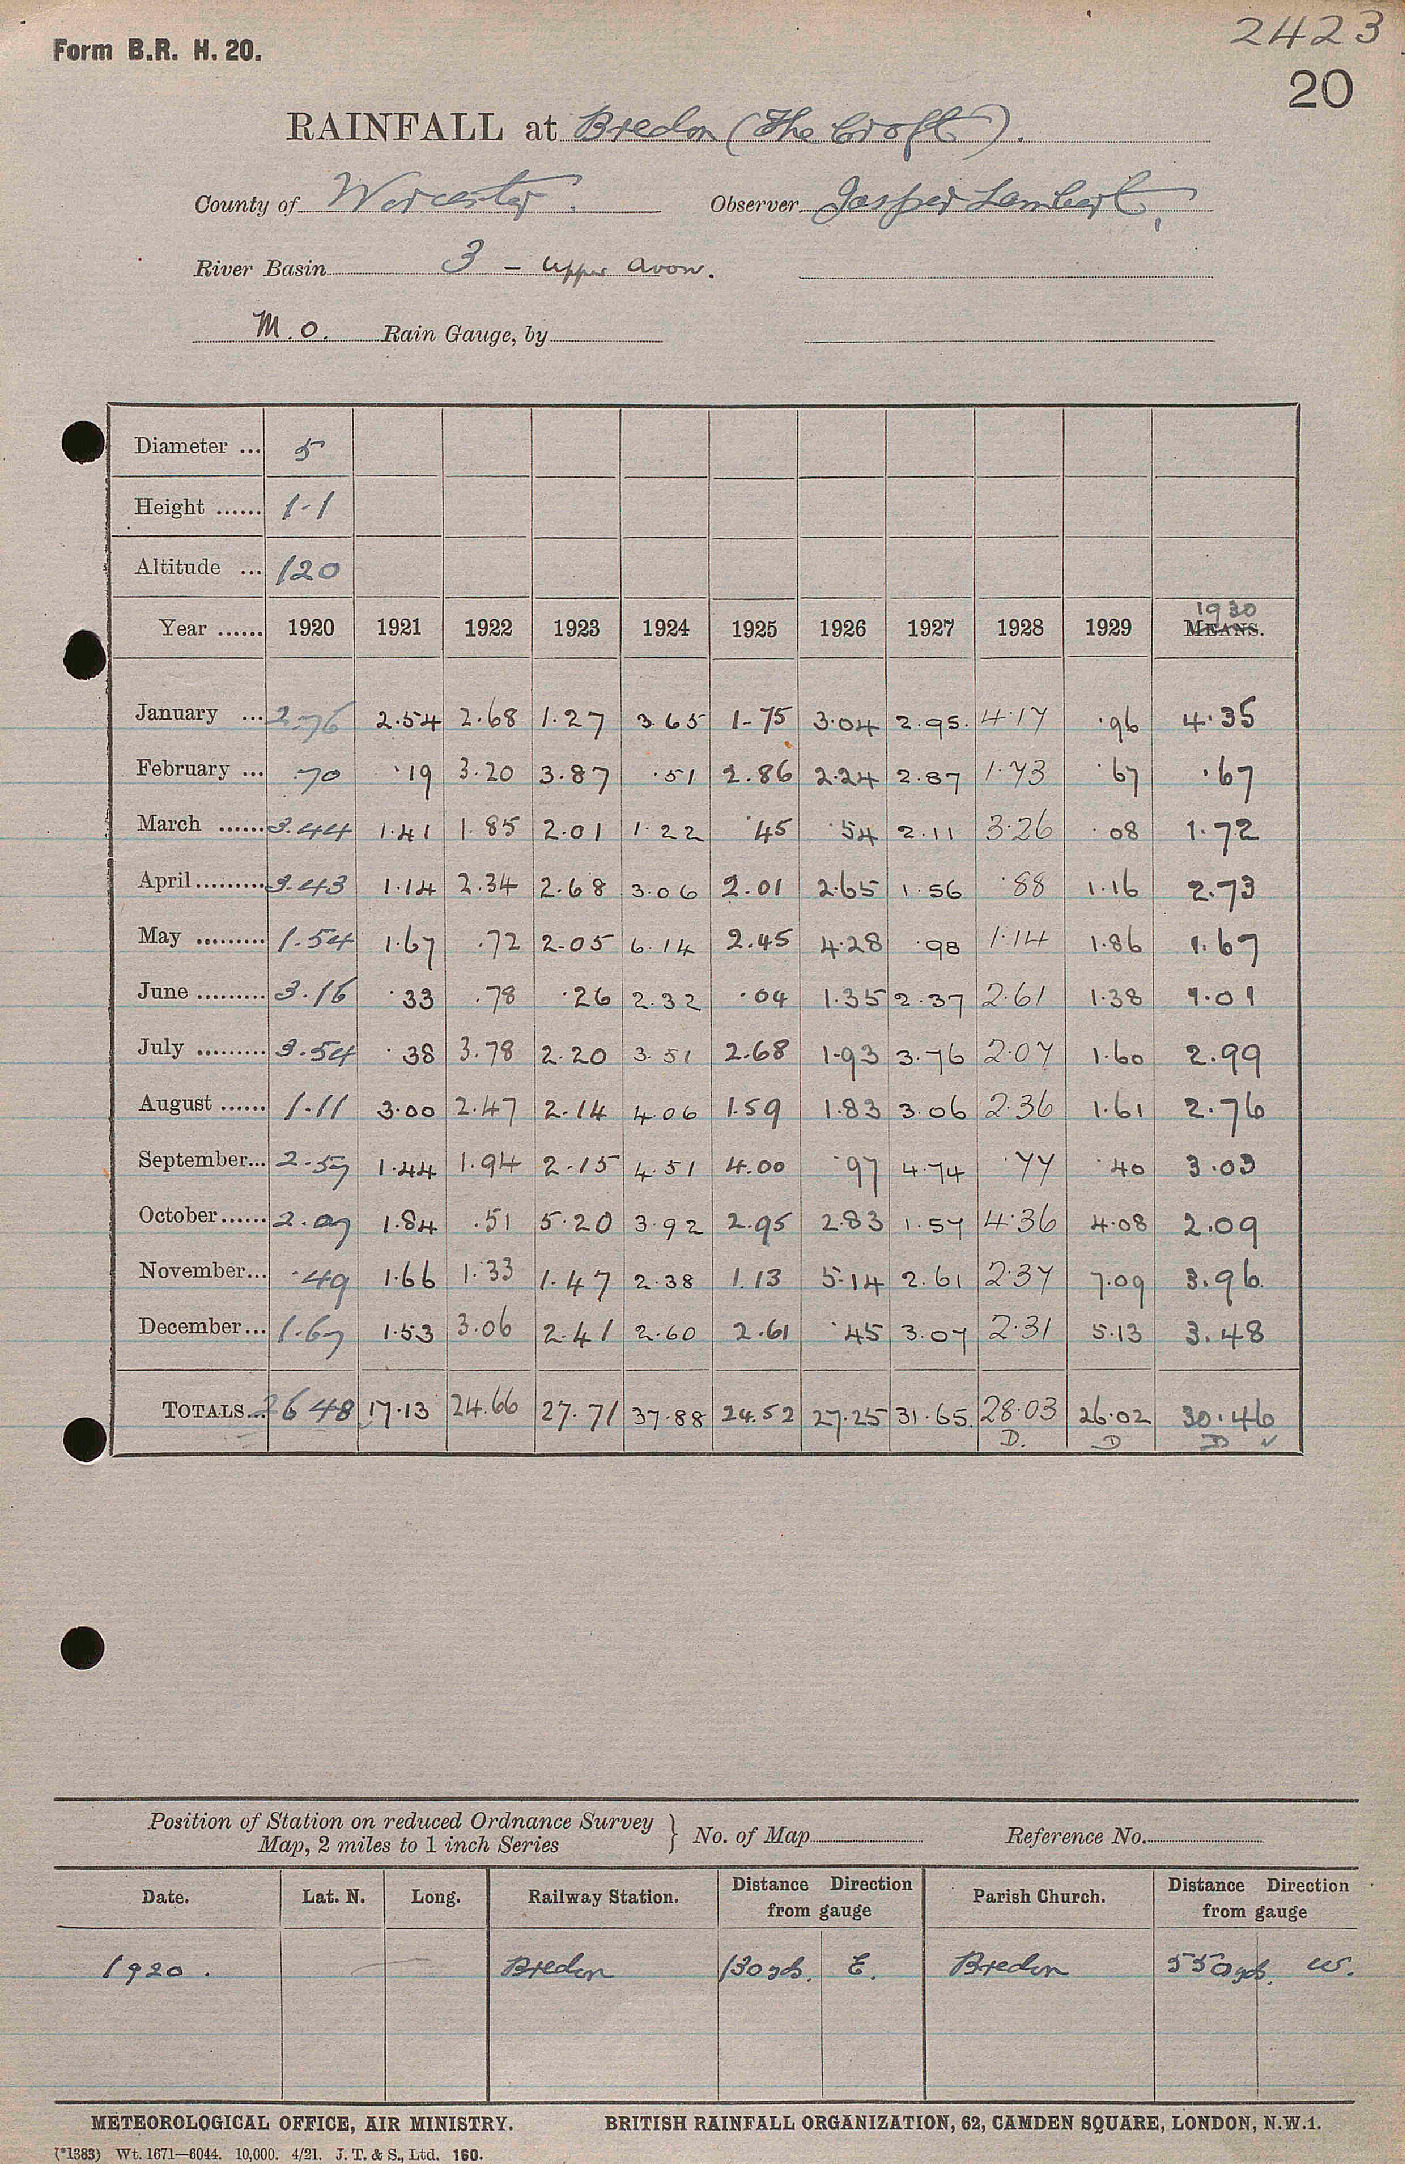 2423
Form B.R. H. 20.
20
RAINFALL at Bredon (The Croft).
County of Worcester. Observer Jasper Lambert,
River Basin 3 - Upper Avon.
M.O. Rain Gauge, by
Diameter ... 5
Height ...... 1-1
Altitude ... 120
1930
Year ...... 1920 1921 1922 1923 1924 1925 1926 1927 1928 1929 MEANS.
January ... 2.76 2.54 2.68 1.27 3.65 1.75 3.04 2.95 4.17 .96 4.35
February ... .70 .19 3.20 3.87 .51 2.86 2.24 2.87 1.73 .67 .67
March ...... 3.44 1.41 1.85 2.01 1.22 .45 .54 2.11 3.26 .08 1.72
April ......... 3.43 1.14 2.34 2.68 3.06 2.01 2.65 1.56 .88 1.16 2.73
May ......... 1.54 1.67 .72 2.05 6.14 2.45 4.28 .98 1.14 1.86 1.67
June ......... 3.16 .33 .78 .26 2.32 .04 1.35 2.37 2.61 1.38 1.01
July ......... 3.54 .38 3.78 2.20 3.51 2.68 1.93 3.76 2.07 1.60 2.99
August ...... 1.11 3.00 2.47 2.14 4.06 1.59 1.83 3.06 2.36 1.61 2.76
September... 2.57 1.44 1.94 2.15 4.51 4.00 .97 4.74 .77 .40 3.03
October...... 2.07 1.84 .51 5.20 3.92 2.95 2.83 1.57 4.36 4.08 2.09
November... .49 1.66 1.33 1.47 2.38 1.13 5.14 2.61 2.37 7.09 3.96
December... 1.67 1.53 3.06 2.41 2.60 2.61 .45 3.07 2.31 5.13 3.48
TOTALS... 26.48 17.13 24.66 27.71 37.88 24.52 27.25 31.65 28.03 26.02 30.46
D. D D ✓
Position of Station on reduced Ordnance Survey
Map, 2 miles to 1 inch Series } No. of Map Reference No.
Date. Lat. N. Long. Railway Station. Distance Direction from gauge Parish Church. Distance Direction from gauge
1920. Bredon 130 yds. E. Bredon 550 yds. W.
METEOROLOGICAL OFFICE, AIR MINISTRY. BRITISH RAINFALL ORGANIZATION, 62, CAMDEN SQUARE, LONDON, N.W.1.
(*1383) Wt. 1671—6044. 10,000. 4/21. J. T. & S., Ltd. 160.